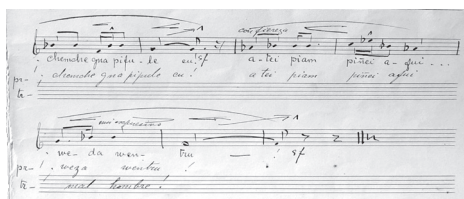 con fiereza
. chemohe gna pifu - le eu! sf a - tei piam piñei a - qui . . .
pr- ! chemohe gna pipule eu! a tei piam piñei aqui
tr-
muy expresivo
. we - da wen - tru — ! sf
pr- ! weza wentru !
tr- ¡mal hombre!